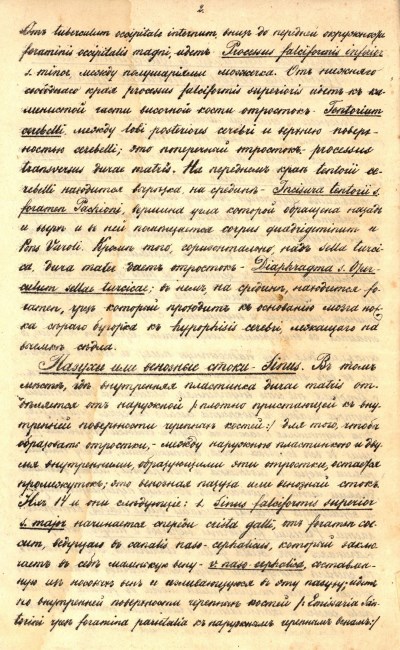 2.
Отъ tuberculum occipitale internum, внизъ до передней окружности
foraminis occipitalis magni, идетъ - Processus falciformis inferior
s. minor между полушаріями мозжечка. Отъ нижняго
свободнаго края processus falciformis superioris идетъ къ ка-
менистой части височной кости отростокъ - Tentorium
cerebelli между lobi posteriores cerebri и верхнею поверх-
ностью cerebelli; это поперечный отростокъ - processus
transversus durae matris. На переднемъ краѣ tentorii ce-
rebelli находится вырѣзка, на срединѣ - Incisura tentorii s.
foramen Pachioni, вершина угла которой обращена назадъ
и вверхъ и въ ней помѣщается corpus quadrigeminum и
Pons Varoli. Кромѣ того, горизонтально, надъ sella turci-
ca, dura mater даетъ отростокъ - Diaphragma s. Oper-
culum sellae turcicae; въ немъ, на срединѣ, находится fo-
ramen, чрезъ который проходитъ къ основанію мозга нож-
ка сѣраго бугорка къ hypophisis cerebri, лежащаго на
выемкѣ сѣдла.
Пазухи или венозные стоки - Sinus. Въ томъ
мѣстѣ, гдѣ внутренняя пластинка durae matris от-
дѣляется отъ наружной /: плотно пристающей къ вну-
тренней поверхности черепныхъ костей :/ для того, чтобы
образовать отростки, - между наружною пластинкою и дву-
мя внутренними, образующими эти отростки, остается
промежутокъ; это венозная пазуха или венозный стокъ
Ихъ 14 и они слѣдующіе: 1. Sinus falciformis superior
s. major начинается спереди crista galli, отъ foramen coe-
cum, ведущаго въ canalis naso-cephalicus, который заклю-
чаетъ въ себѣ маленькую вену - v. naso-cephalica, составлен-
ную изъ носовыхъ венъ и изливающуюся въ эту пазуху; идетъ
по внутренней поверхности черепныхъ костей /: Emissaria San-
torini чрезъ foramina parietalia къ наружнымъ черепнымъ венамъ :/